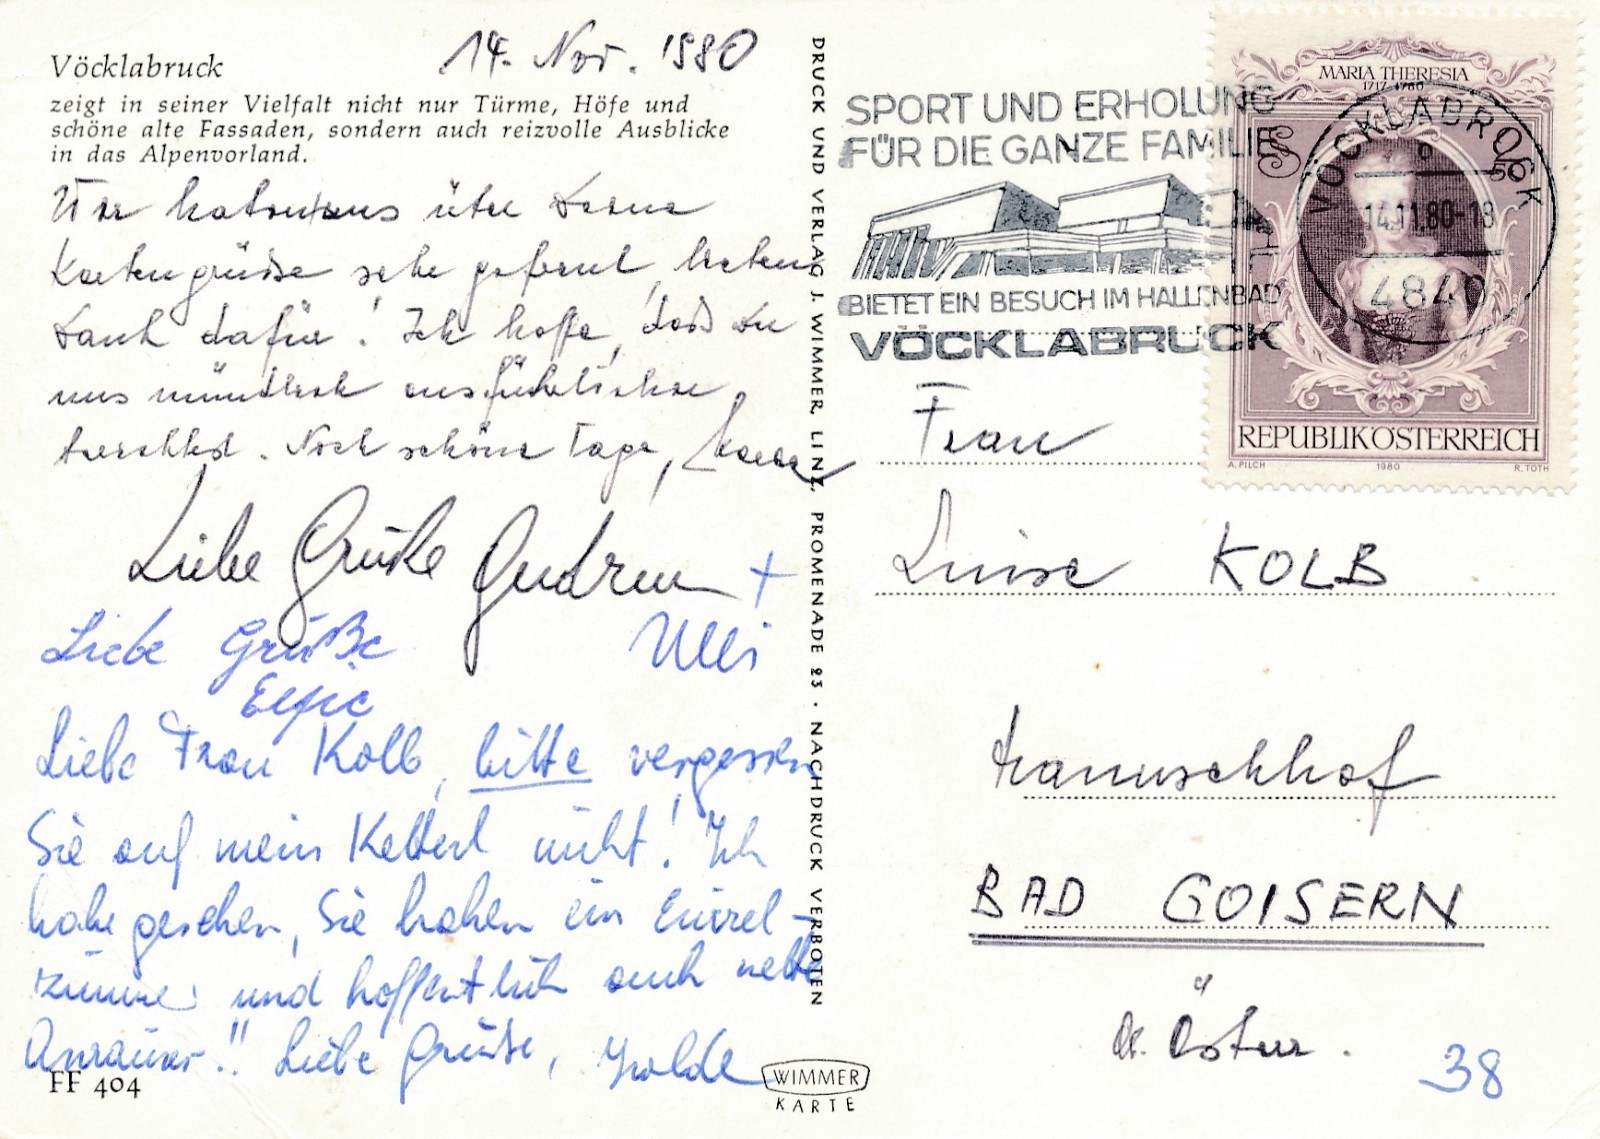 14. Nov. 1980
Vöcklabruck
zeigt in seiner Vielfalt nicht nur Türme, Höfe und
schöne alte Fassaden, sondern auch reizvolle Ausblicke
in das Alpenvorland.
Wir haben uns über Deine
Kartengrüsse sehr gefreut, lieben
Dank dafür! Ich hoffe, dass Du
uns mündlich ausführlicher
berichtest. Noch schöne Tage,
Liebe Grüße Gudrun +
Ulli
Liebe Grüße
Elfie
Liebe Frau Kolb, bitte vergessen
Sie auf mein Ketterl nicht! Ich
habe gesehen, Sie haben ein Einzel-
zimmer und hoffentlich auch nette
Anrainer!! Liebe Grüsse, Isolde
FF 404
DRUCK UND VERLAG J. WIMMER, LINZ, PROMENADE 23 · NACHDRUCK VERBOTEN
WIMMER
KARTE
SPORT UND ERHOLUNG
FÜR DIE GANZE FAMILIE
BIETET EIN BESUCH IM HALLENBAD
VÖCKLABRUCK
MARIA THERESIA
1717-1780
S
50
REPUBLIK ÖSTERREICH
A. PILCH 1980 R. TOTH
VÖCKLABRUCK
14.11.80-18
4840
Frau
Luise KOLB
BAD GOISERN
38